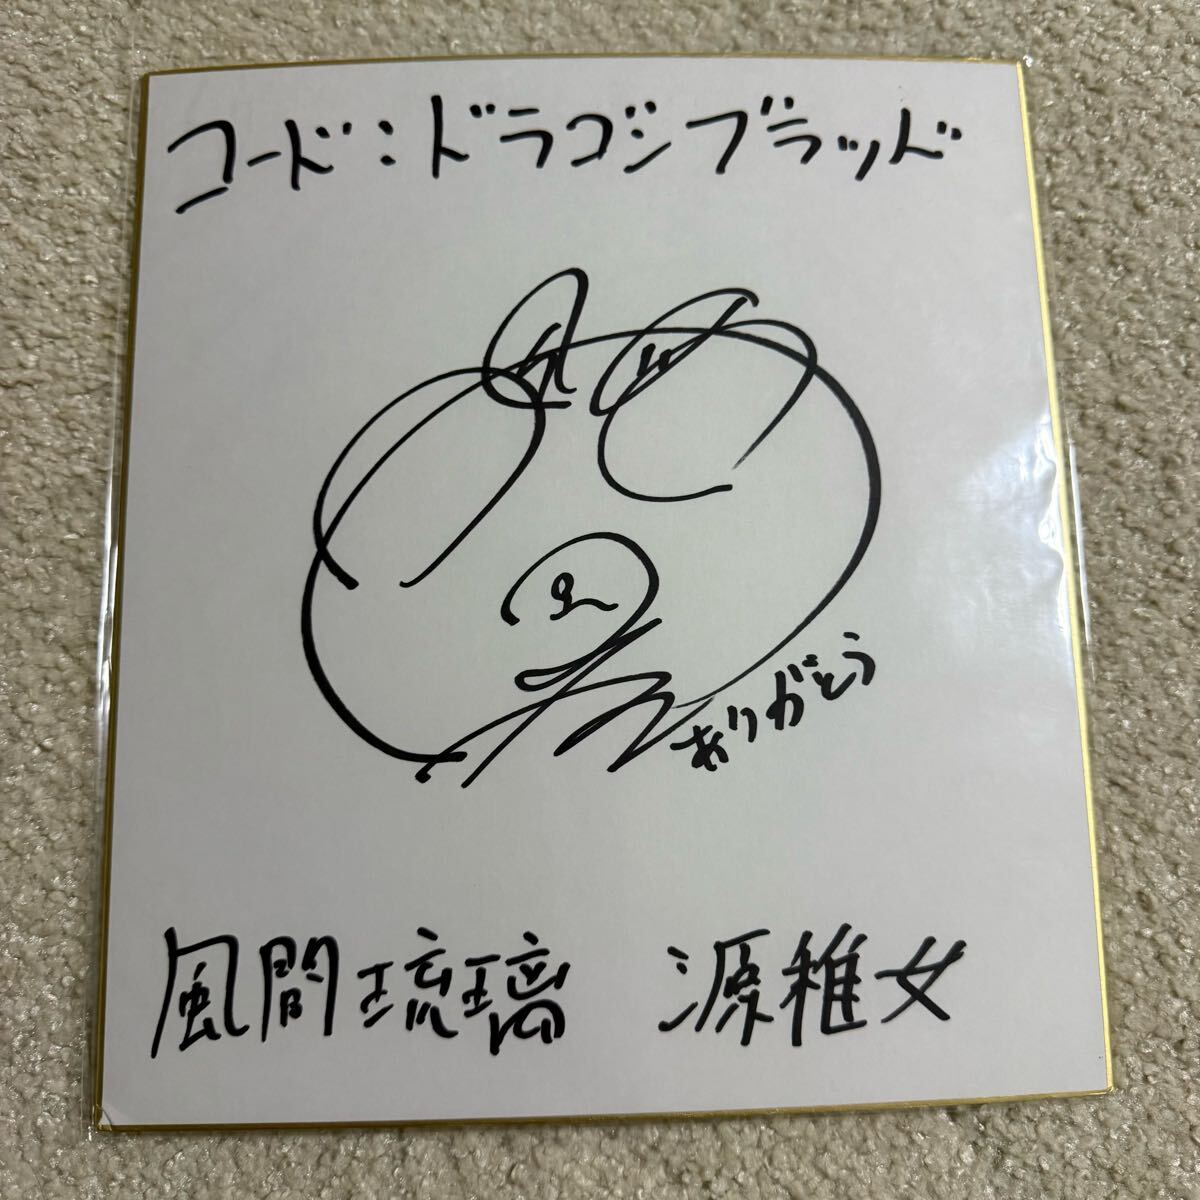 コード:ドラゴンブラッド
ありがとう
風間琉璃 源稚女